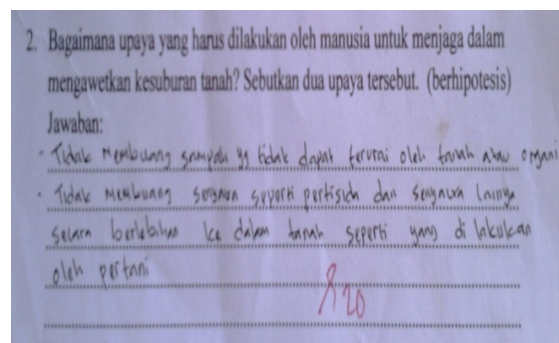 2. Bagaimana upaya yang harus dilakukan oleh manusia untuk menjaga dalam
mengawetkan kesuburan tanah? Sebutkan dua upaya tersebut. (berhipotesis)
Jawaban:
- Tidak Membuang sampah yg tidak dapat terurai oleh tanah atau organi
- Tidak Membuang senyawa seperti pertisida dan senyawa lainnya
secara berlebihan ke dalam tanah seperti yang di lakukan
oleh pertani
20